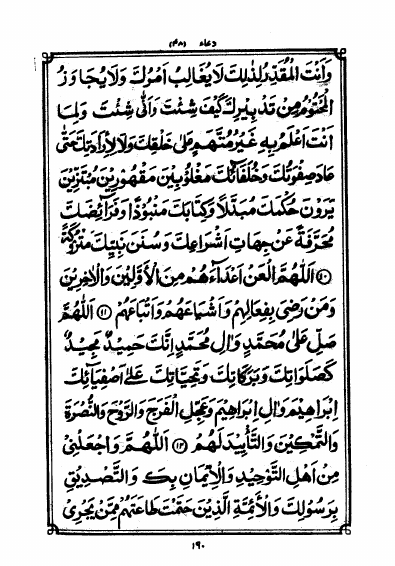 دعاء (۴۸)
وَاَنْتَ الْمُقَدِّرُ لِذٰلِكَ لَا يُغَالَبُ اَمْرُكَ وَلَا يُجَاوَزُ
الْمَحْتُوْمُ مِنْ تَدْبِيْرِكَ كَيْفَ شِئْتَ وَاَنّٰى شِئْتَ وَلِمَا
اَنْتَ اَعْلَمُ بِهٖ غَيْرُ مُتَّهَمٍ عَلٰى خَلْقِكَ وَلَا لِاِرَادَتِكَ حَتّٰى
عَادَ صِفْوَتُكَ وَخُلَفَائُكَ مَغْلُوْبِيْنَ مَقْهُوْرِيْنَ مُبْتَزِّيْنَ
يَرَوْنَ حُكْمَكَ مُبَدَّلًا وَكِتَابَكَ مَنْبُوْذًا وَفَرَآئِضَكَ
مُحَرَّفَةً عَنْ جِهَاتِ اَشْرَاعِكَ وَسُنَنَ نَبِيِّكَ مَتْرُوْكَةً
﴿۱۰﴾ اَللّٰهُمَّ الْعَنْ اَعْدَآءَهُمْ مِنَ الْاَوَّلِيْنَ وَالْاٰخِرِيْنَ
وَمَنْ رَضِيَ بِفِعَالِهِمْ وَاَشْيَاعَهُمْ وَاَتْبَاعَهُمْ ﴿۱۱﴾ اَللّٰهُمَّ
صَلِّ عَلٰى مُحَمَّدٍ وَاٰلِ مُحَمَّدٍ اِنَّكَ حَمِيْدٌ مَجِيْدٌ
كَصَلَوَاتِكَ وَبَرَكَاتِكَ وَتَحِيَّاتِكَ عَلٰى اَصْفِيَآئِكَ
اِبْرَاهِيْمَ وَاٰلِ اِبْرَاهِيْمَ وَعَجِّلِ الْفَرَجَ وَالرَّوْحَ وَالنُّصْرَةَ
وَالتَّمْكِيْنَ وَالتَّأْيِيْدَ لَهُمْ ﴿۱۲﴾ اَللّٰهُمَّ وَاجْعَلْنِيْ
مِنْ اَهْلِ التَّوْحِيْدِ وَالْاِيْمَانِ بِكَ وَالتَّصْدِيْقِ
بِرَسُوْلِكَ وَالْاَئِمَّةِ الَّذِيْنَ حَتَمْتَ طَاعَتَهُمْ مِمَّنْ يَجْرِيْ
۱۹۰